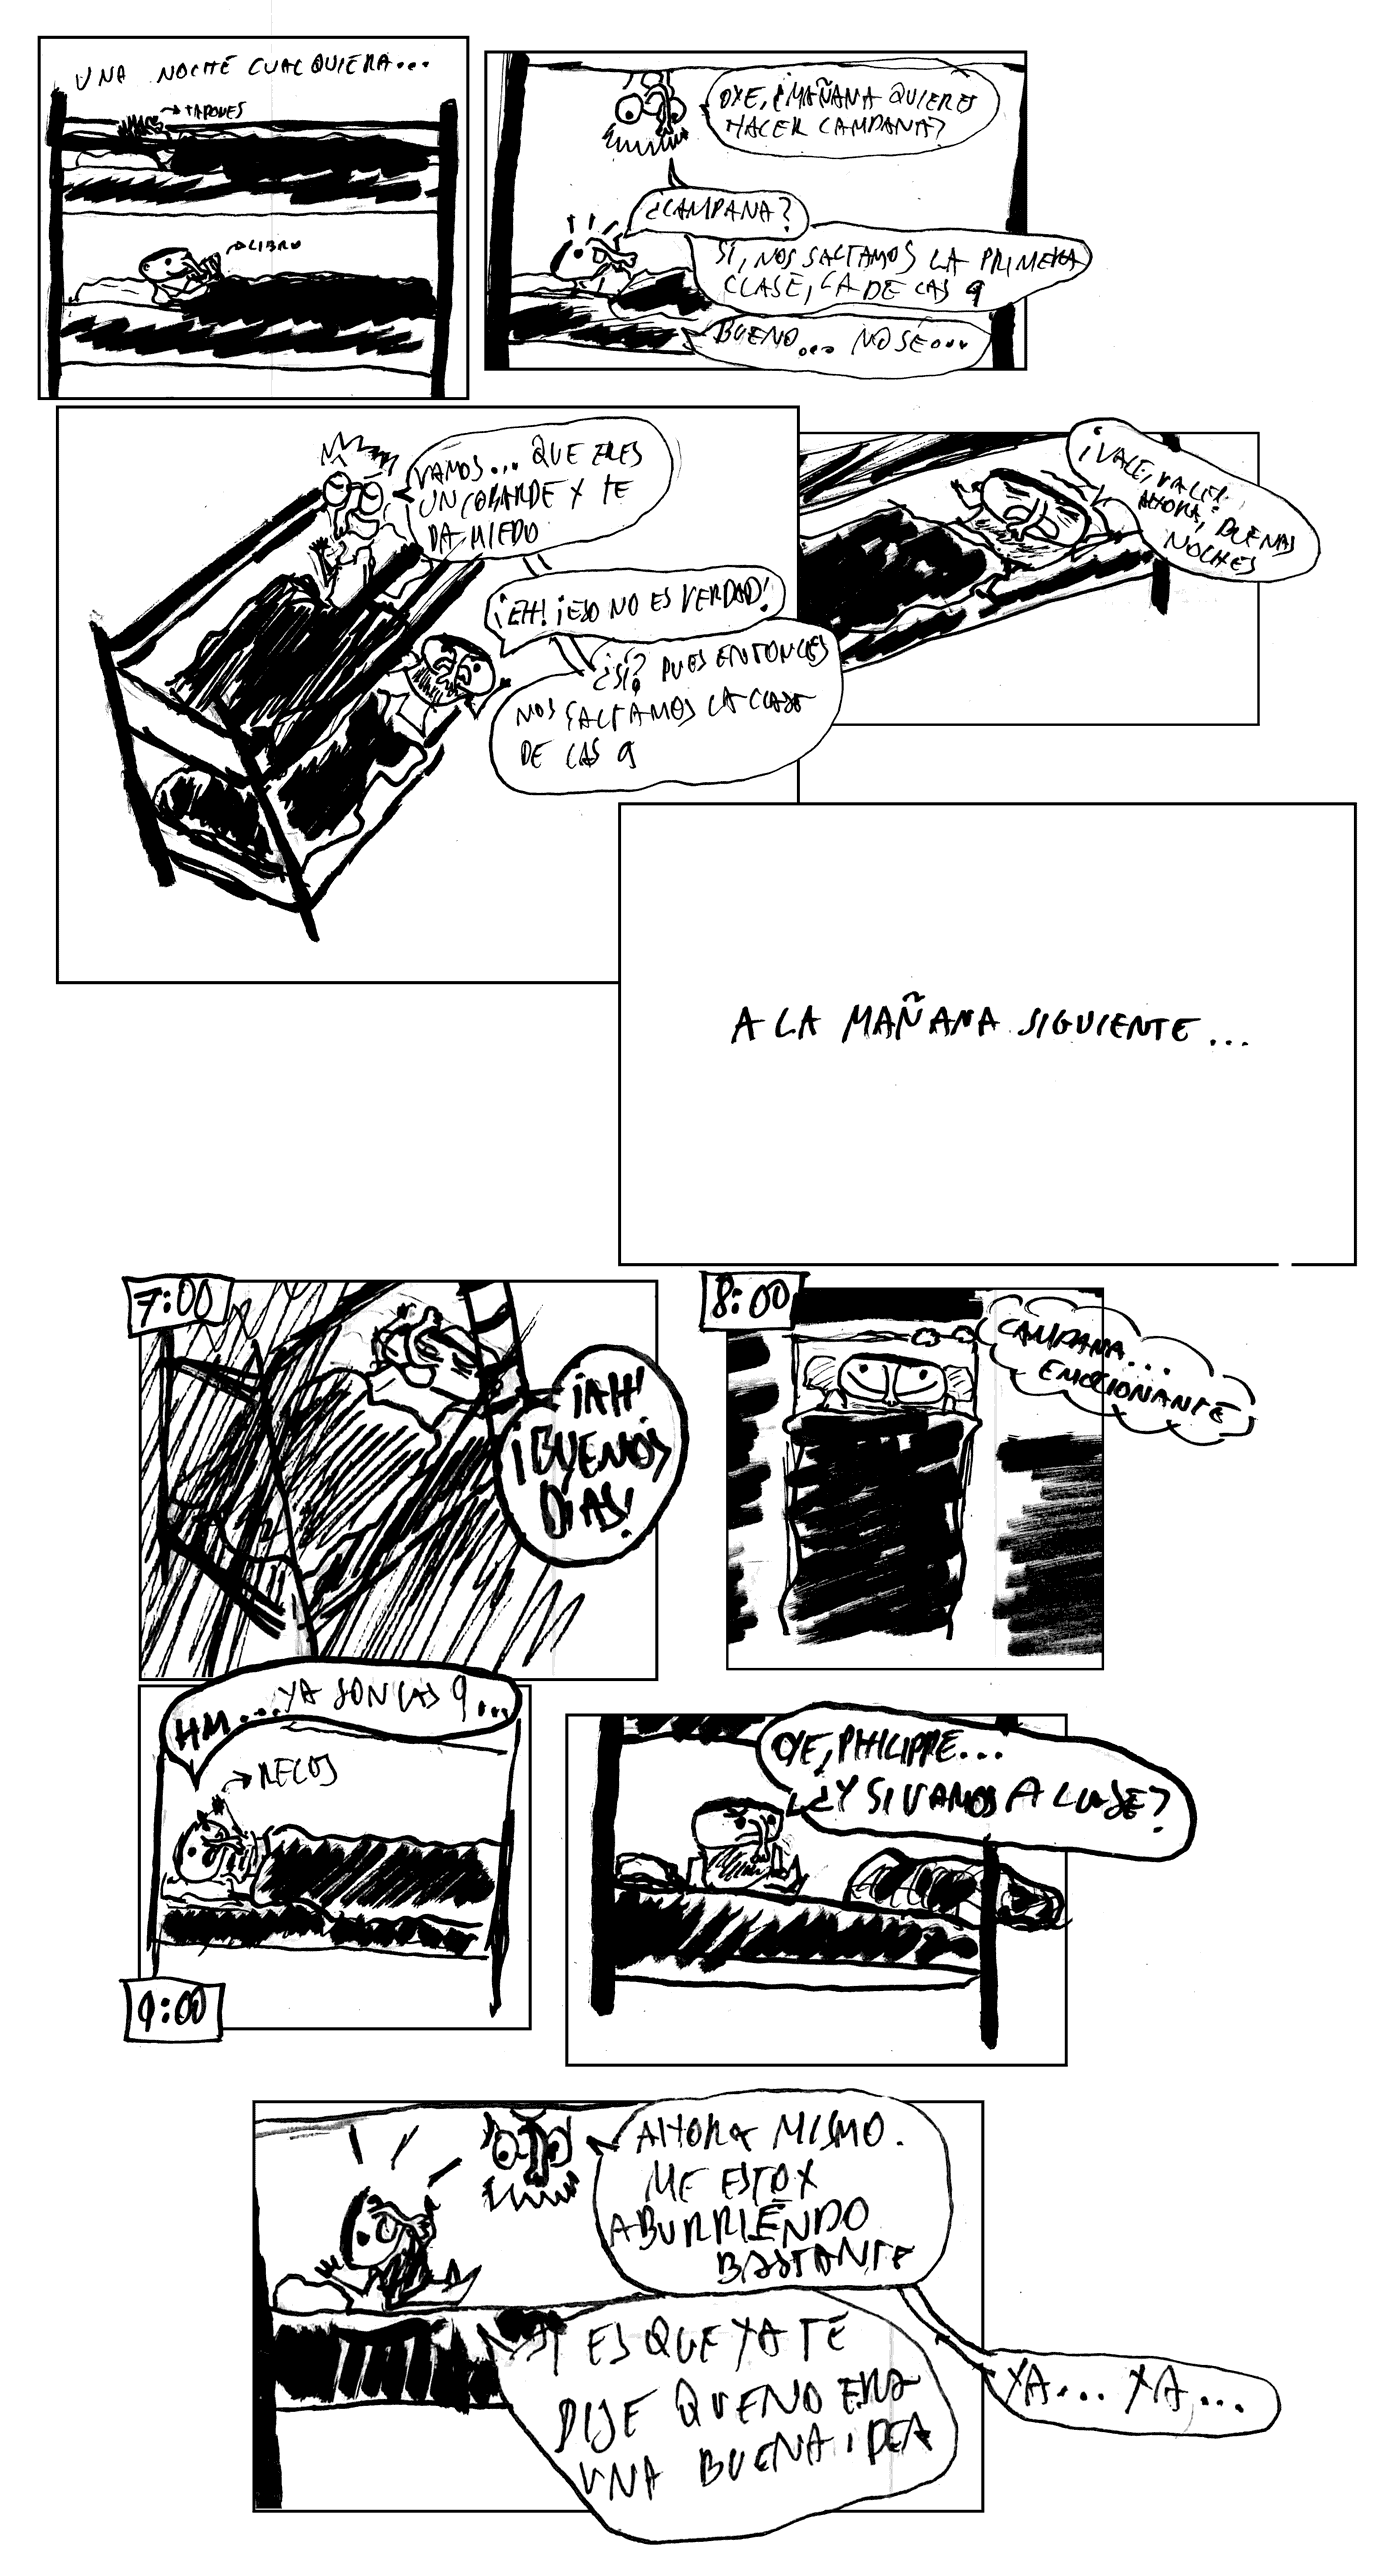 UNA NOCHE CUALQUIERA...
→TAPONES
→LIBRO
OYE, ¿MAÑANA QUIERES
HACER CAMPANA?
¿CAMPANA?
SÍ, NOS SALTAMOS LA PRIMERA
CLASE, LA DE LAS 9
BUENO... NO SÉ...
VAMOS... QUE ERES
UN COBARDE Y TE
DA MIEDO
¡EH! ¡ESO NO ES VERDAD!
¿SÍ? PUES ENTONCES
NOS SALTAMOS LA CLASE
DE LAS 9
¡VALE, VALE!
AHORA, BUENAS
NOCHES
A LA MAÑANA SIGUIENTE...
7:00
¡AH!
¡BUENOS
DÍAS!
8:00
CAMPANA...
EMOCIONANTE
HM... YA SON LAS 9...
→RELOJ
9:00
OYE, PHILIPPE...
¿Y SI VAMOS A CLASE?
AHORA MISMO.
ME ESTOY
ABURRIENDO
BASTANTE
ES QUE YA TE
DIJE QUE NO ERA
UNA BUENA IDEA
YA... YA...